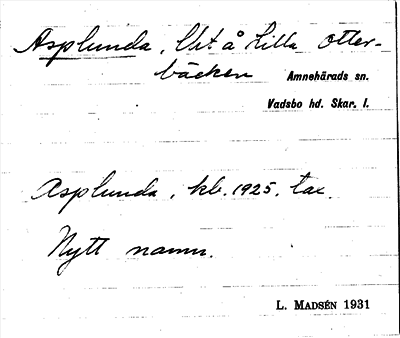 Asplunda, Ut å Lilla Otter-
bäcken Amnehärads sn.
Vadsbo hd. Skar. l.
Asplunda, kb. 1925. tax.
Nytt namn.
L. MADSÉN 1931